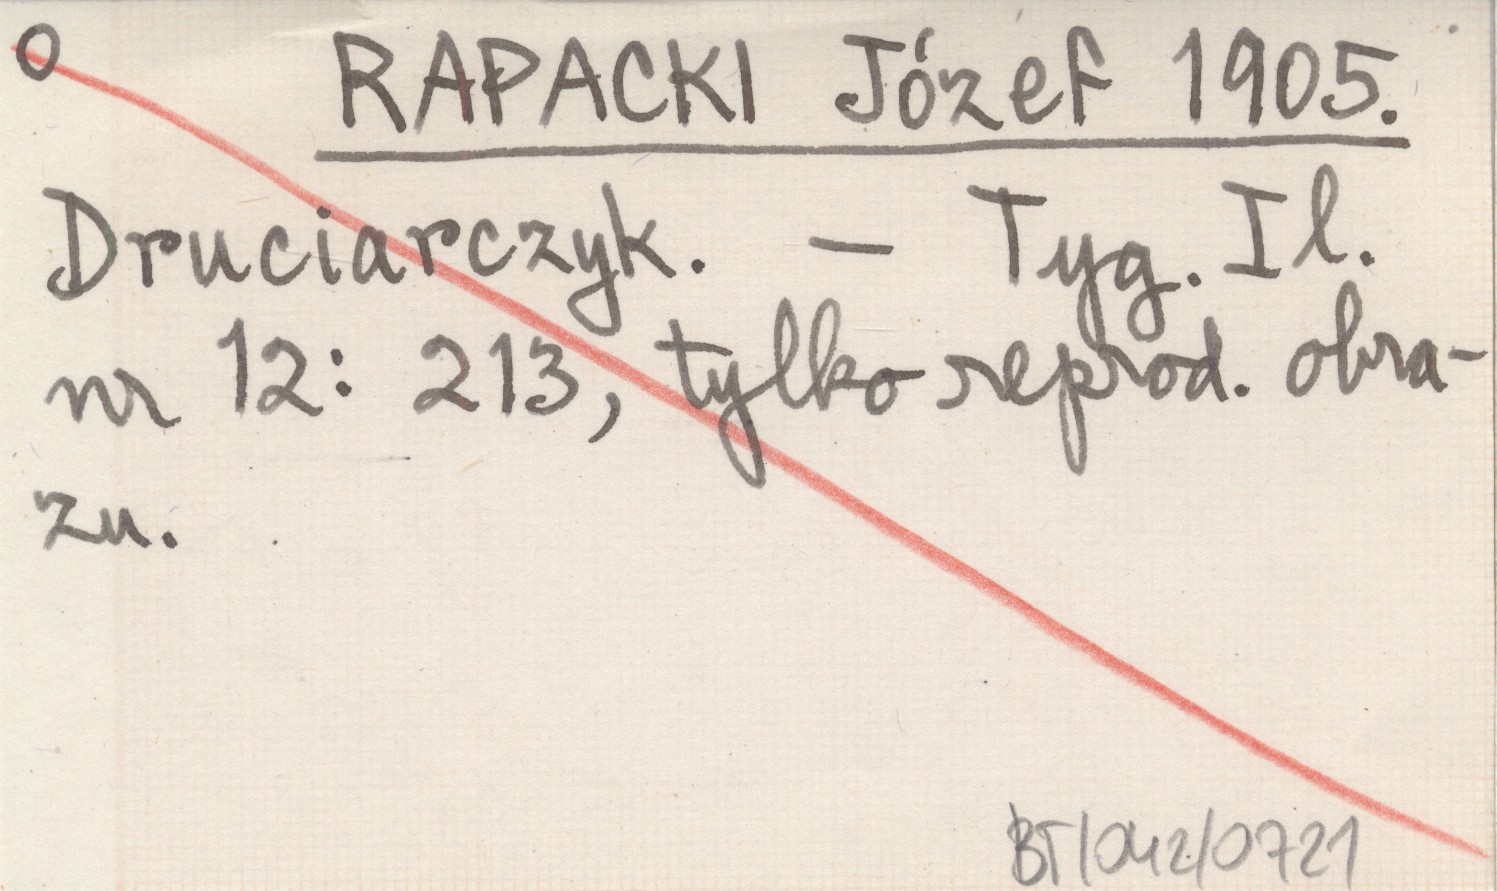 O RAPACKI Józef 1905.
Druciarczyk. — Tyg. Il.
nr 12: 213, tylko reprod. obra-
zu.
BT/042/0721